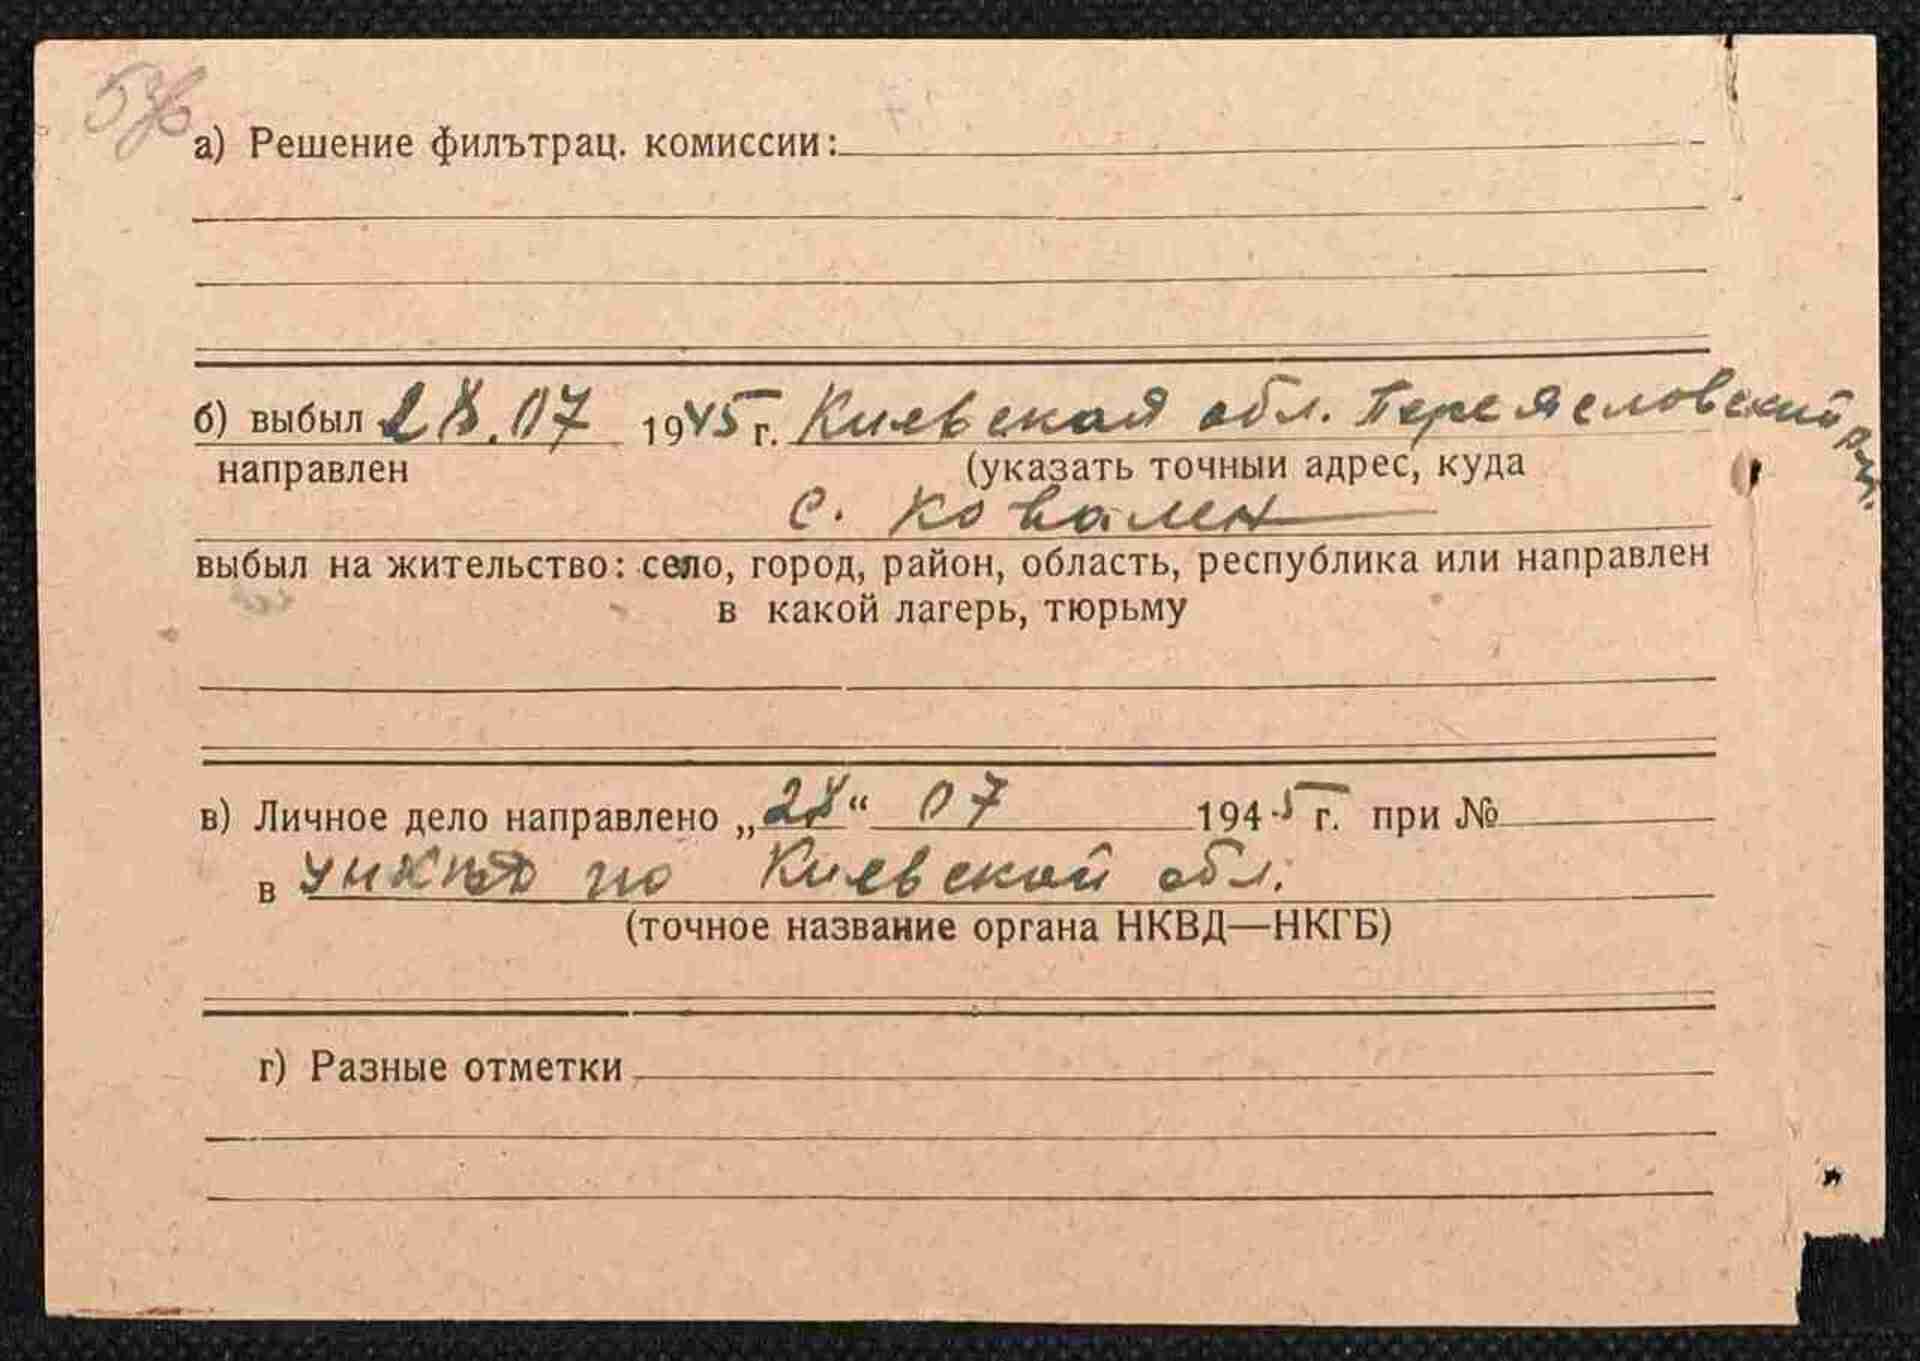 а) Решение филътрац. комиссии:
б) выбыл 28.07 1945 г. Киевская обл. Переясловский р-н.
направлен (указать точныи адрес, куда
с. Ковален
выбыл на жительство: село, город, район, область, республика или направлен
в какой лагерь, тюрьму
в) Личное дело направлено „28“ 07 1945 г. при №
в УНКВД по Киевской обл.
(точное название органа НКВД—НКГБ)
г) Разные отметки